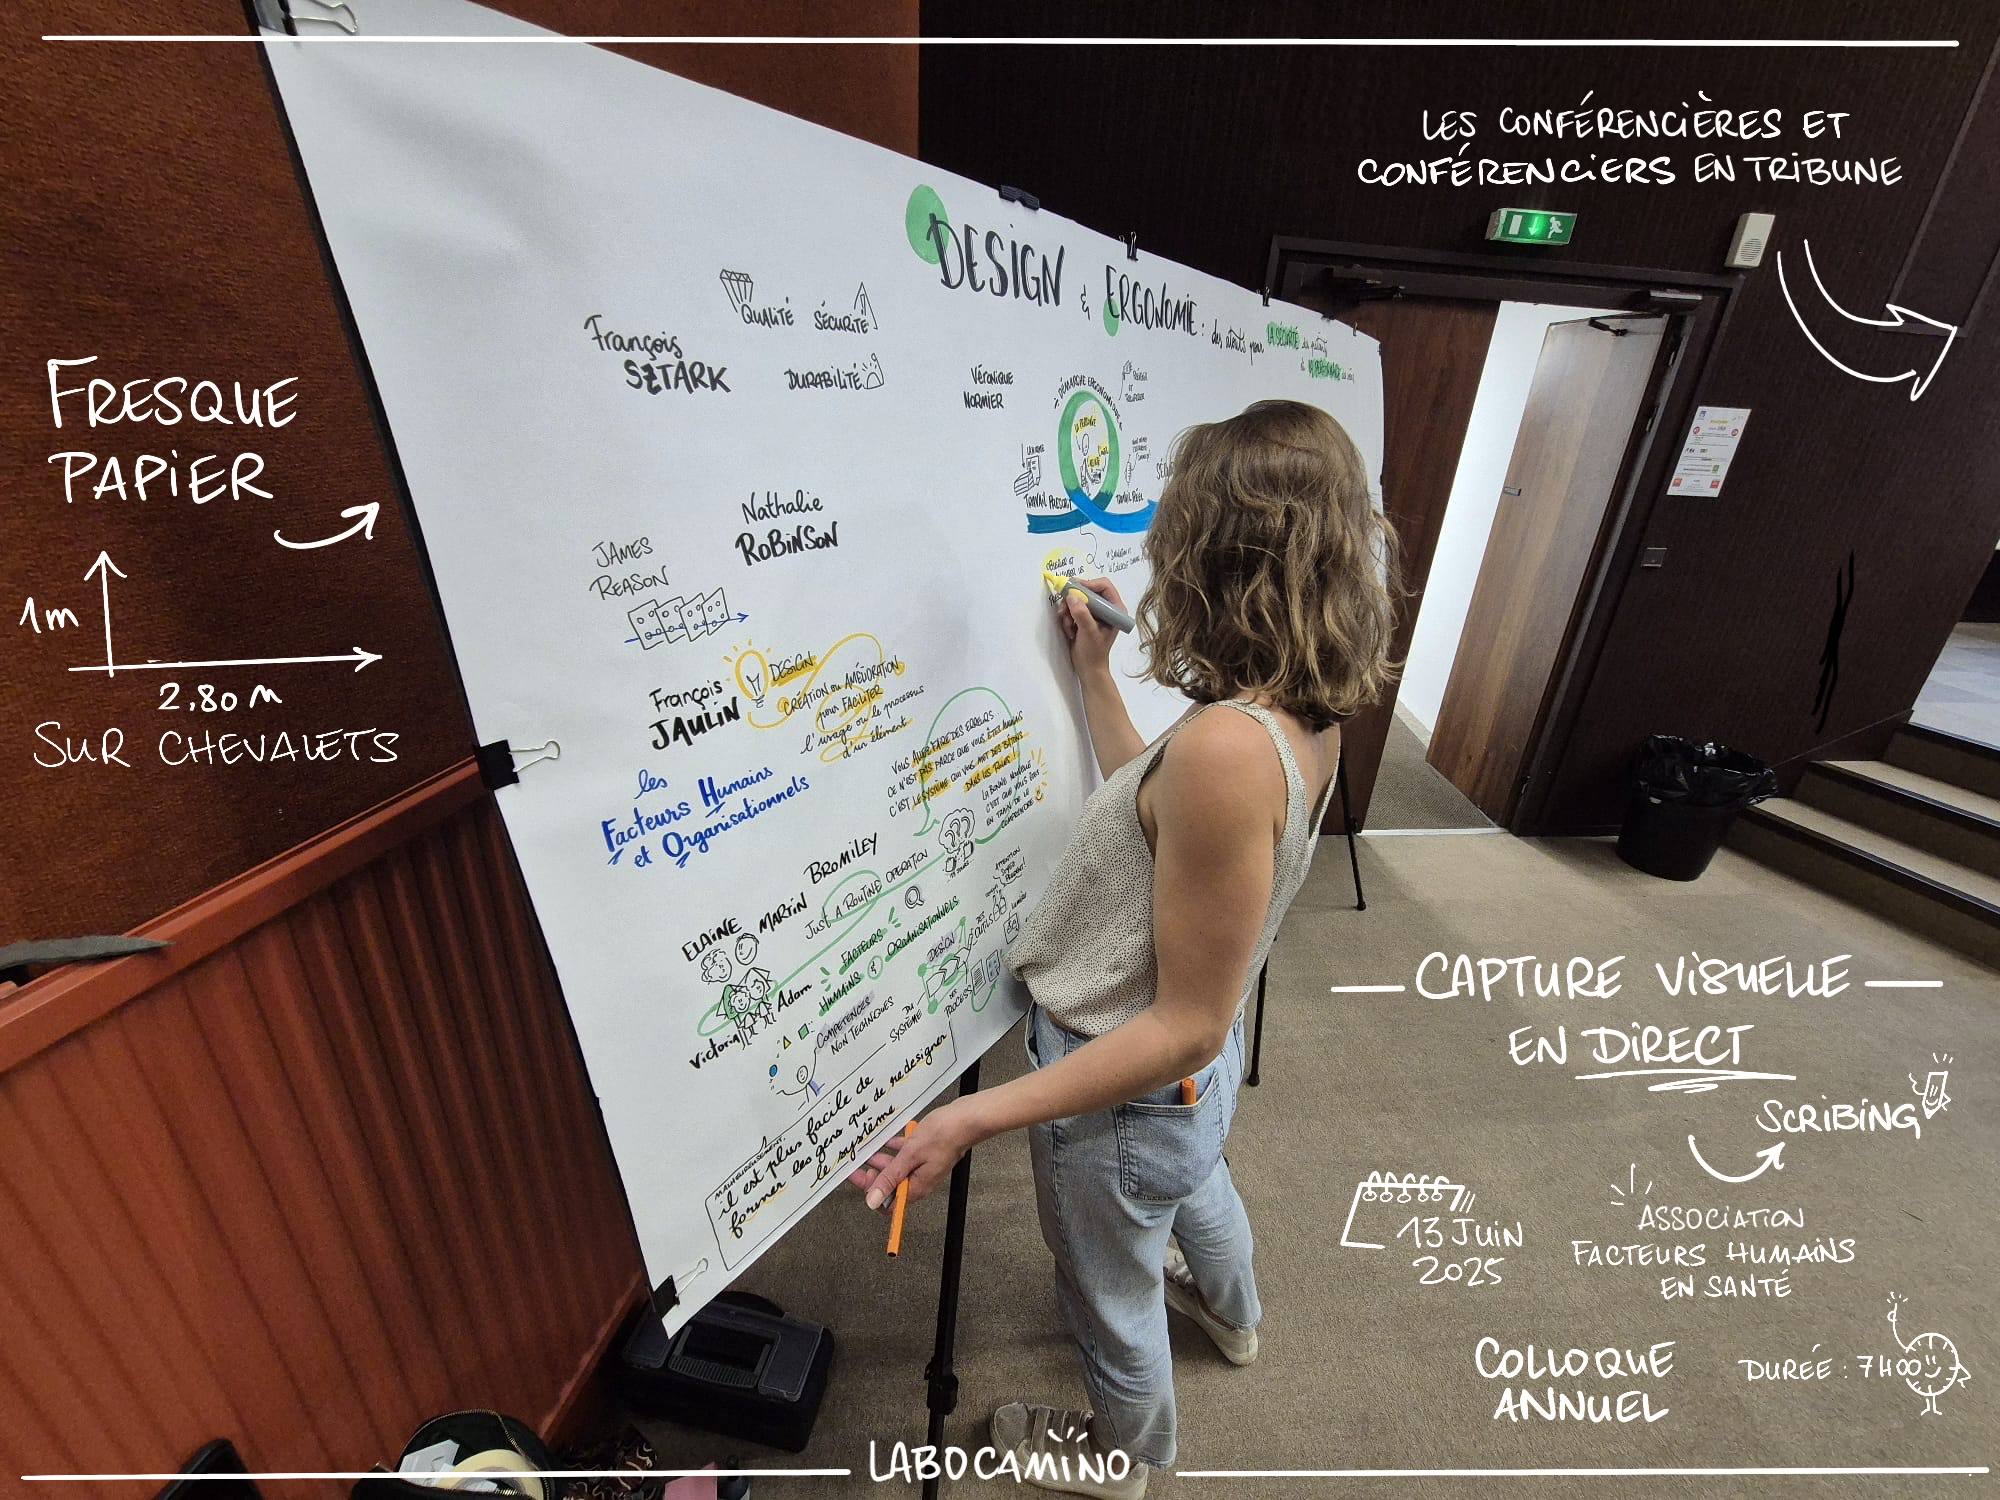 LES CONFÉRENCIÈRES ET
CONFÉRENCIERS EN TRIBUNE
FRESQUE
PAPIER
1m
2,80 m
SUR CHEVALETS
DESIGN & ERGONOMIE : des atouts pour LA SÉCURITÉ des patients
QUALITÉ SÉCURITÉ
DURABILITÉ
François
SZTARK
Véronique
NORMIER
DÉMARCHE ERGONOMIQUE
TRAVAIL PRESCRIT
TRAVAIL RÉEL
Nathalie
ROBINSON
JAMES
REASON
François
JAULIN
DESIGN
CRÉATION ou AMÉLIORATION
pour FACILITER
l'usage ou le processus
d'un élément
les
Facteurs Humains
et Organisationnels
VOUS ALLEZ FAIRE DES ERREURS
CE N'EST PAS PARCE QUE VOUS ÊTES MAUVAIS
C'EST LE SYSTÈME QUI VOUS MET DES BÂTONS
DANS LES ROUES !
LA BONNE NOUVELLE
C'EST QUE VOUS ÊTES
EN TRAIN DE LE
COMPRENDRE
ELAINE MARTIN BROMILEY
JUST A ROUTINE OPERATION
Victoria Adam
FACTEURS
HUMAINS & ORGANISATIONNELS
COMPÉTENCES
NON TECHNIQUES
DESIGN
DU
SYSTÈME
DES
PROCESS
DES
OUTILS
MALHEUREUSEMENT,
il est plus facile de
former les gens que de redesigner
le système
CAPTURE VISUELLE
EN DIRECT
SCRIBING
13 JUIN
2025
ASSOCIATION
FACTEURS HUMAINS
EN SANTÉ
COLLOQUE
ANNUEL
DURÉE : 7H00
LABOCAMINO